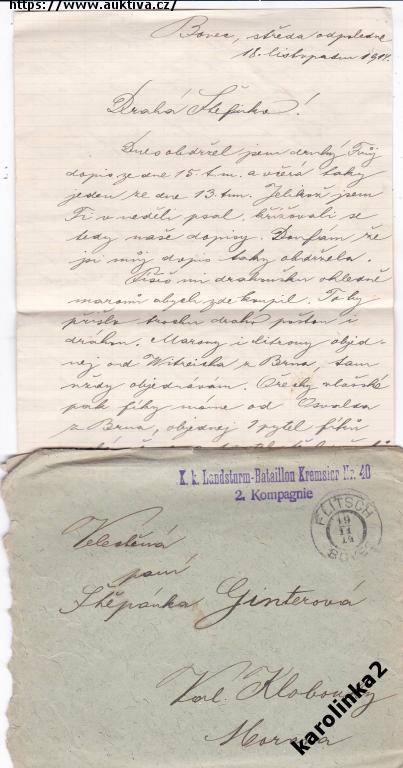 https://www.auktiva.cz/
Bovec, středa odpoledne
18. listopadu 1914.
Drahá Štefinko!
Dnes obdržel jsem druhý Tvůj
dopis ze dne 15. t. m. a včera taky
jeden ze dne 13. tm. Jelikož jsem
Ti v neděli psal, křižovali se
tedy naše dopisy. Doufám že
jsi můj dopis taky obdržela.
Píšeš mi drahoušku ohledně
maronů abych zde koupil. To by
přišlo trochu draho poštou i
dráhou. Marony i citrony objed-
nej od z Brna, tam
vždy objednávám. Ořechy vlašské
pak fíky máme od Osvalda
z Brna, objednej 1 pytel fíků
K. k. Landsturm-Bataillon Kremsier Nr. 40
2. Kompagnie
FLITSCH
19
11
14
BOVEC
Velectěná
paní
Štěpánka Ginterová
Val. Klobouky
Morava
karolinka2